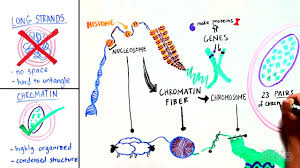 LONG STRANDS
- no space
- hard to untangle
CHROMATIN
- highly organized
- condensed structure
HISTONE
NUCLEOSOME
CHROMATIN
FIBER
CHROMOSOME
make proteins
GENES
23 PAIRS
of chrom